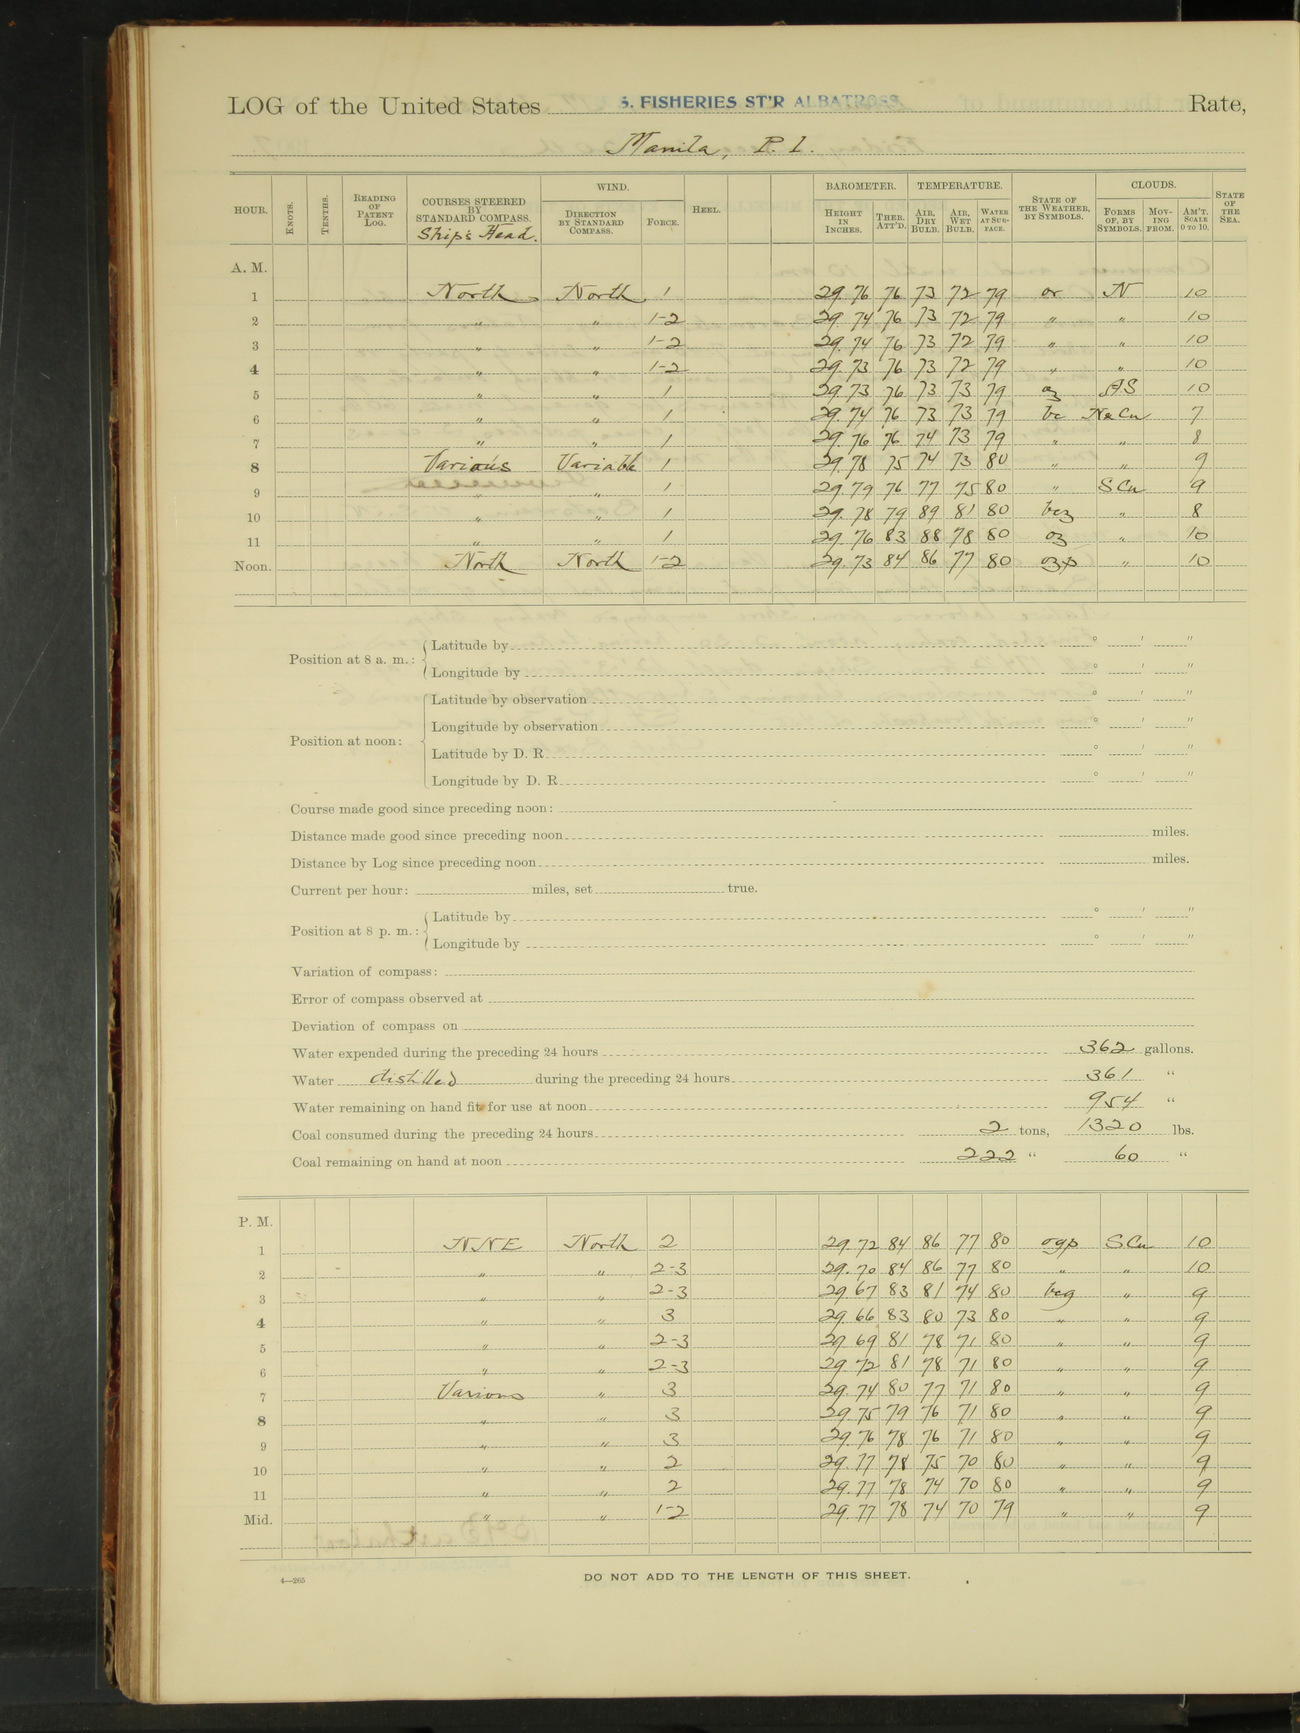 LOG of the United States S. FISHERIES ST'R ALBATROSS Rate,
Manila, P. I.
HOUR. KNOTS. TENTHS. READING OF PATENT LOG. COURSES STEERED BY STANDARD COMPASS. Ship's Head. WIND. DIRECTION BY STANDARD COMPASS. FORCE. HEEL. BAROMETER. HEIGHT IN INCHES. THER. ATT'D. TEMPERATURE. AIR, DRY BULB. AIR, WET BULB. WATER AT SURFACE. STATE OF THE WEATHER, BY SYMBOLS. CLOUDS. FORMS OF, BY SYMBOLS. MOVING FROM. AM'T. SCALE 0 TO 10. STATE OF THE SEA.
A. M.
1 North North 1 29.76 76 73 72 79 or N 10
2 " " 1-2 29.74 76 73 72 79 " " 10
3 " " 1-2 29.74 76 73 72 79 " " 10
4 " " 1-2 29.73 76 73 72 79 " " 10
5 " " 1 29.73 76 73 73 79 oz AS 10
6 " " 1 29.74 76 73 73 79 bc N&Cu 7
7 " " 1 29.76 76 74 73 79 " " 8
8 Various Variable 1 29.78 75 74 73 80 " " 9
9 " " 1 29.79 76 77 75 80 " S Cu 9
10 " " 1 29.78 79 89 81 80 bcz " 8
11 " " 1 29.76 83 88 78 80 oz " 10
Noon. North North 1-2 29.73 84 86 77 80 ozp " 10
Position at 8 a. m.: Latitude by ° ' "
Longitude by ° ' "
Position at noon: Latitude by observation ° ' "
Longitude by observation ° ' "
Latitude by D. R. ° ' "
Longitude by D. R. ° ' "
Course made good since preceding noon:
Distance made good since preceding noon miles.
Distance by Log since preceding noon miles.
Current per hour: miles, set true.
Position at 8 p. m.: Latitude by ° ' "
Longitude by ° ' "
Variation of compass:
Error of compass observed at
Deviation of compass on
Water expended during the preceding 24 hours 362 gallons.
Water distilled during the preceding 24 hours 361 "
Water remaining on hand fit for use at noon 954 "
Coal consumed during the preceding 24 hours 2 tons, 1320 lbs.
Coal remaining on hand at noon 222 " 60 "
P. M.
1 NNE North 2 29.72 84 86 77 80 ogp S Cu 10
2 " " 2-3 29.70 84 86 77 80 " " 10
3 " " 2-3 29.67 83 81 74 80 bcg " 9
4 " " 3 29.66 83 80 73 80 " " 9
5 " " 2-3 29.69 81 78 71 80 " " 9
6 " " 2-3 29.72 81 78 71 80 " " 9
7 Various " 3 29.74 80 77 71 80 " " 9
8 " " 3 29.75 79 76 71 80 " " 9
9 " " 3 29.76 78 76 71 80 " " 9
10 " " 2 29.77 78 75 70 80 " " 9
11 " " 2 29.77 78 74 70 80 " " 9
Mid. " " 1-2 29.77 78 74 70 79 " " 9
4—265 DO NOT ADD TO THE LENGTH OF THIS SHEET.